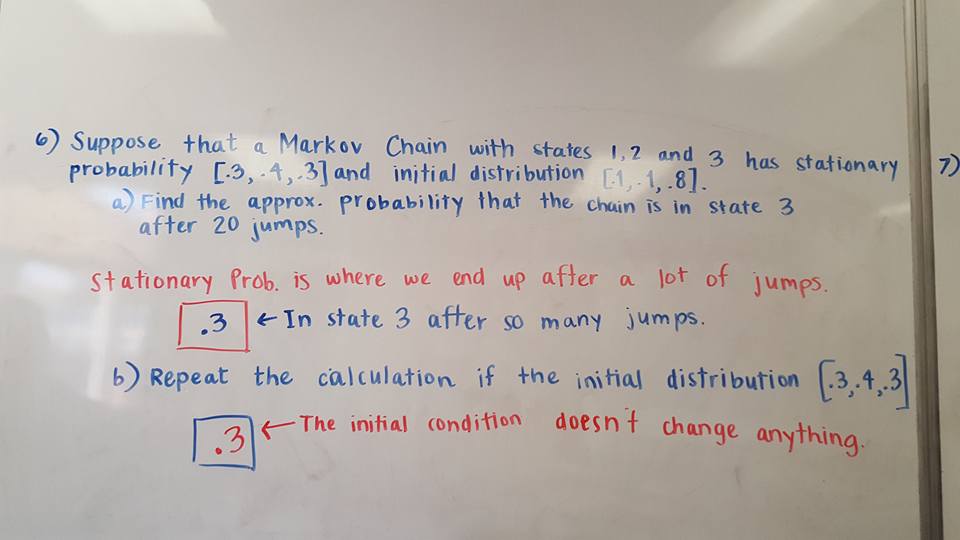 6) Suppose that a Markov Chain with states 1,2 and 3 has stationary
probability [.3, .4, .3] and initial distribution [.1, .1, .8].
a) Find the approx. probability that the chain is in state 3
after 20 jumps.
Stationary Prob. is where we end up after a lot of jumps.
.3 ← In state 3 after so many jumps.
b) Repeat the calculation if the initial distribution [.3, .4, .3]
.3 ← The initial condition doesn't change anything.
7)